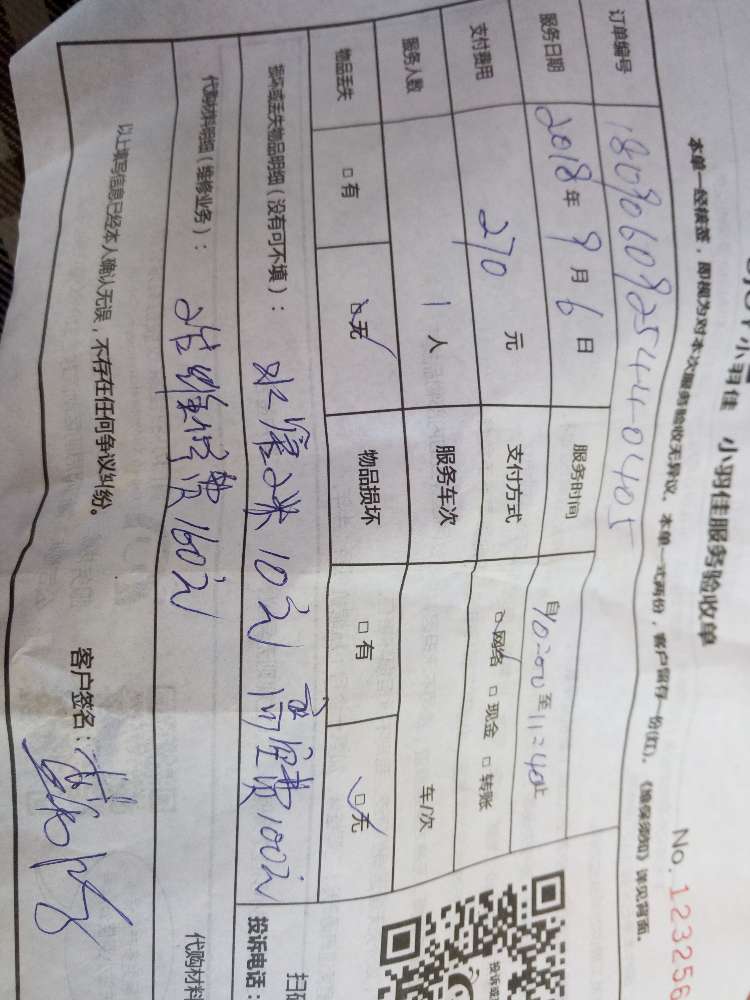 小羽佳 小羽佳服务验收单
No. 123256
本单一经核签，即视为对本次服务验收无异议。本单一式两份，客户留存一份(红)。《维保须知》详见背面。
订单编号 18090609254440405
服务日期 2018年9月6日 服务时间 自10:00至11:40止
支付费用 270元 支付方式 □网络 □现金 □转账
服务人数 1人 服务车次 车/次
物品丢失 □有 □无 物品损坏 □有 □无
损坏或丢失物品明细（没有可不填）： 水 10元 高空费100元
代购材料明细（维修业务）： 维修费160元
以上填写信息已经本人确认无误，不存在任何争议纠纷。
客户签名：
投诉电话：
代购材料